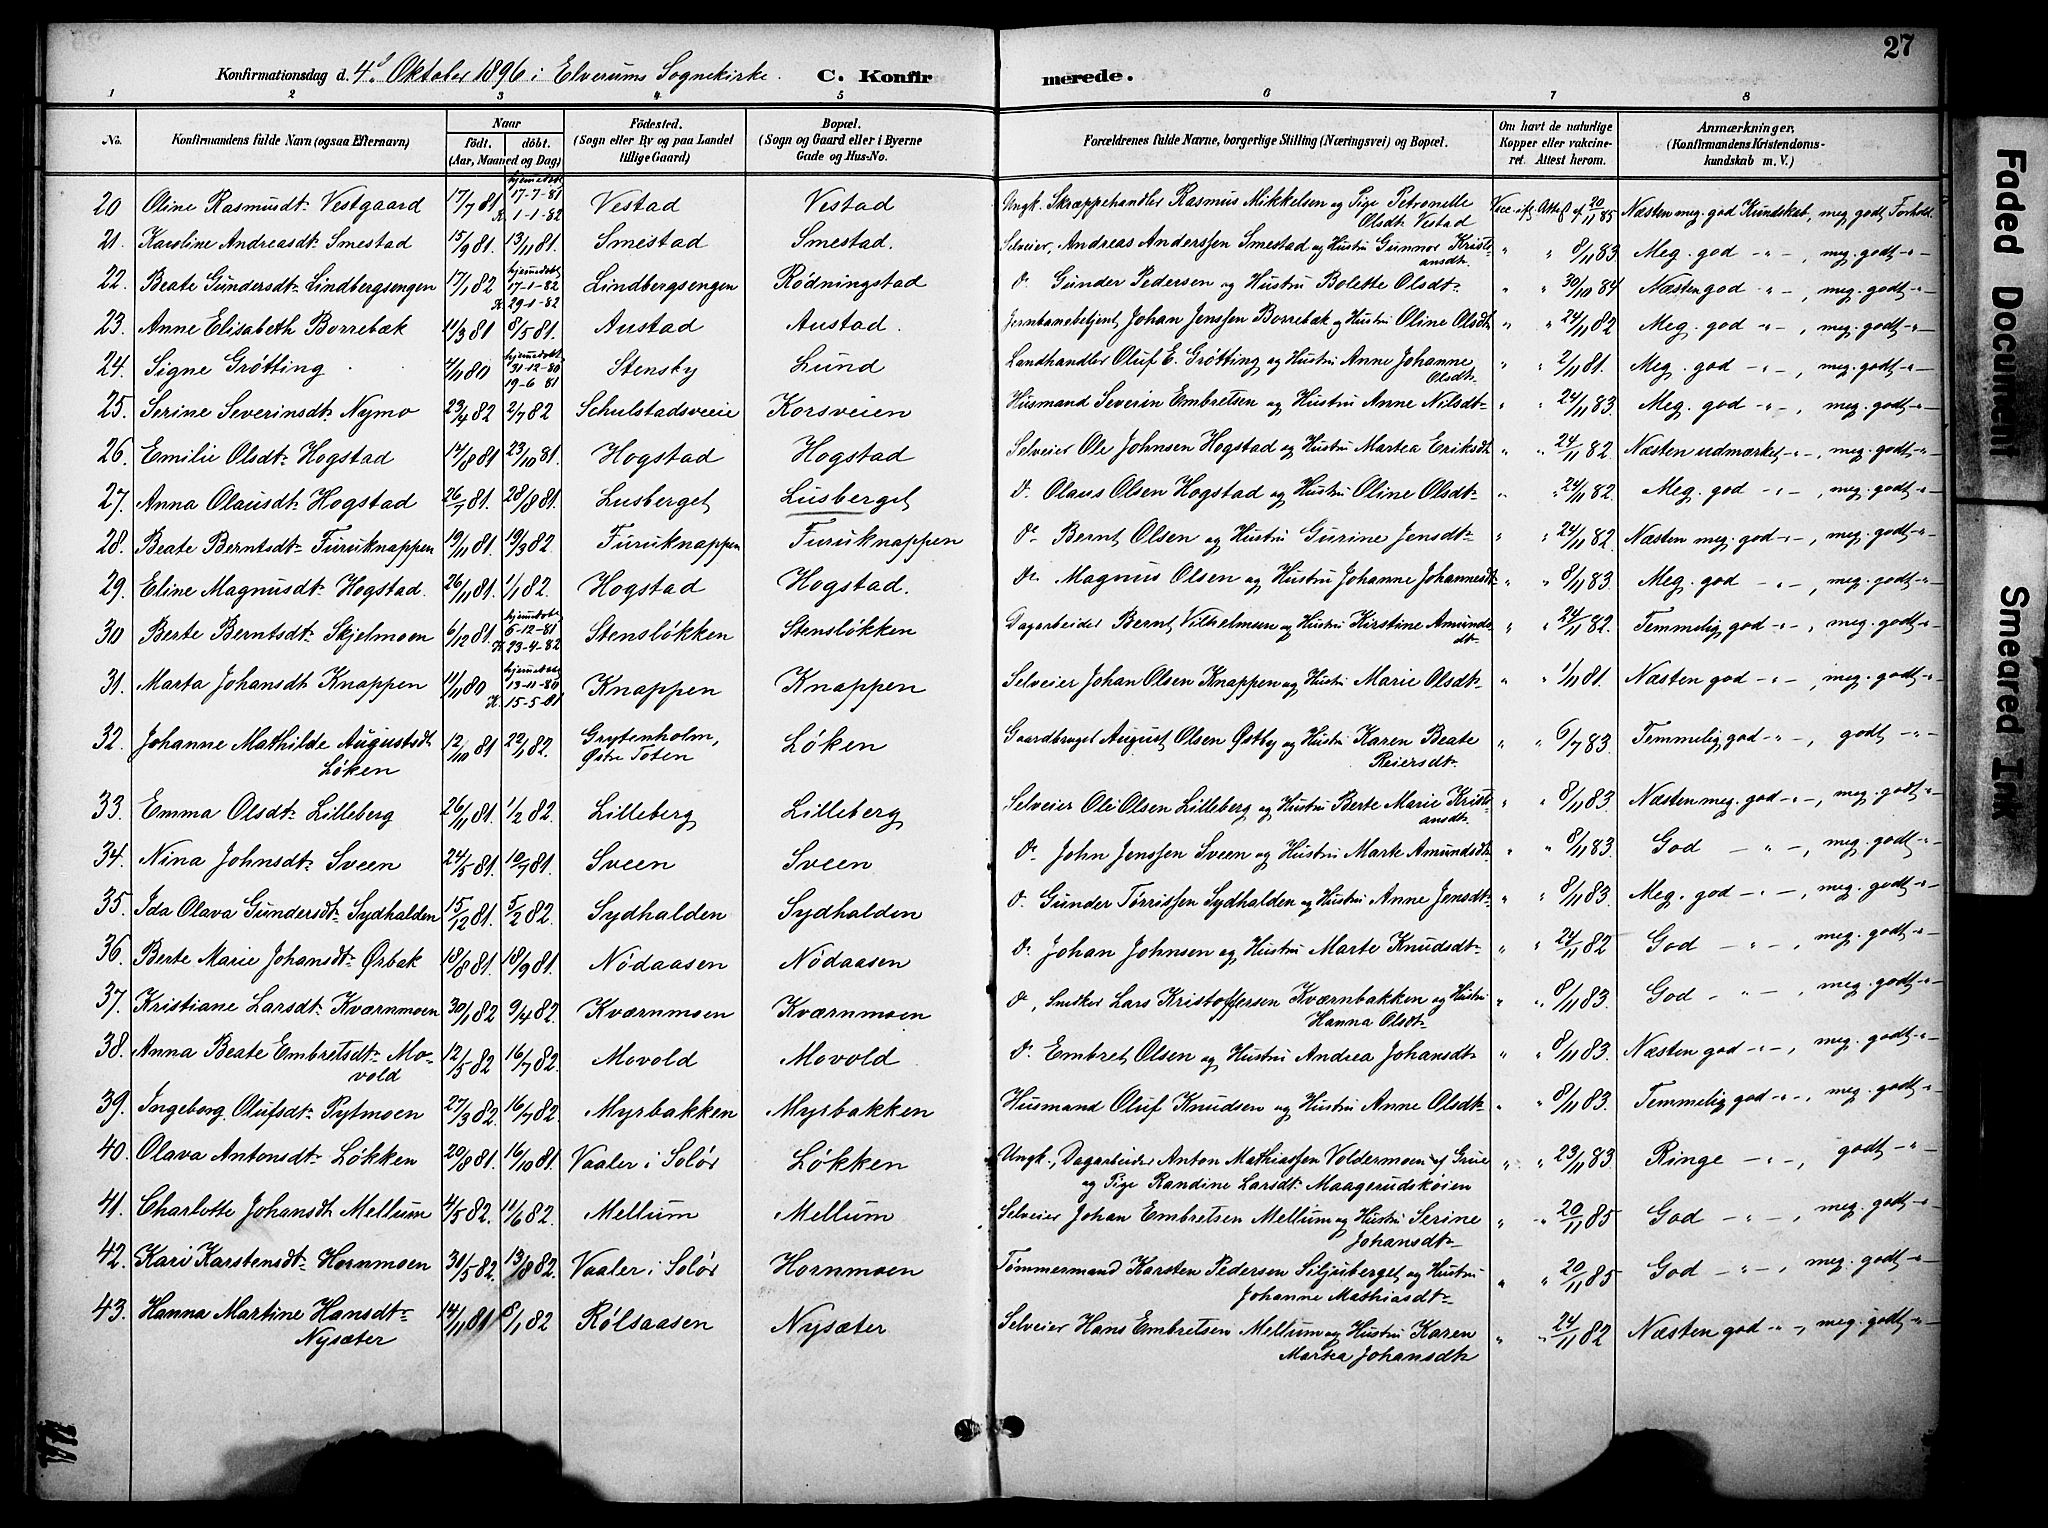 27
Konfirmationsdag d. 4de Oktober 1896 i Elverums Sognekirke. C. Konfirmerede.
1 2 3 4 5 6 7 8
No. Konfirmandens fulde Navn (ogsaa Efternavn) Naar Födt. döbt. (Aar, Maaned og Dag) Födested. (Sogn eller By og paa Landet tillige Gaard) Bopæl. (Sogn og Gaard eller i Byerne Gade og Hus-No. Forældrenes fulde Navne, borgerlige Stilling (Næringsvei) og Bopæl. Om havt de naturlige Kopper eller vakcineret. Attest herom. Anmærkninger. (Konfirmandens Kristendomskundskab m. V.)
20 Oline Rasmusdt. Vestgaard 17/7 81 hjemmedøbt 17-7-81 K. 1-1-82 Vestad Vestad Ungk. Skræppehandler Rasmus Mikkelsen og Pige Petronelle Olsdt. Vestad Vacc. ifl. Attest af 20/11 85 Næsten meg. god Kundskab, meg. godt Forhold
21. Karoline Andreasdt. Smestad 15/9 81. 13/11 81. Smestad Smestad. Selveier, Andreas Anderssen Smestad og Hustru Gunnor Kristiansdt. " " 8/11 83 Meg. god -"-, meg. godt -"-
22. Beate Gundersdt. Lindbergsengen 17/1 82 hjemmedøbt 17-1-82 K. 29-1-82 Lindbergsengen Rødningstad do. Gunder Pedersen og Hustru Bolette Olsdt. " " 30/10 84 Næsten god -"-, meg. godt -"-
23. Anne Elisabeth Borrebæk 11/3 81 8/5 81. Austad Austad. Jernbanebetjent Johan Jenssen Borrebæk og Hustru Oline Olsdt. " " 24/11 82 Meg. god -"-, meg. godt -"-
24. Signe Grøtting 4/11 80 hjemmedøbt 31-12-80 19-6 81 Stensby Lund Landhandler Oluf E. Grøtting og Hustru Anne Johanne Olsdt. " " 2/11 81. Meg. god -"-, meg. godt -"-
25. Serine Severinsdt. Nymo 23/4 82 2/7 82 Schulstadsveie Korsveien Husmand Severin Embretsen og Hustru Anne Nilsdt. " " 24/11 83. Meg. god -"-, meg. godt -"-
26. Emilie Olsdt. Hogstad 14/8 81 23/10 81. Hogstad Hogstad Selveier Ole Johnsen Hogstad og Hustru Martea Eriksdt. " " 24/11 82. Næsten udmærket -"-, meg. godt -"-
27. Anna Olausdt. Hogstad 26/7 81. 28/8 81. Lusberget Lusberget do. Olaus Olsen Hogstad og Hustru Oline Olsdt. " " 24/11 82. Meg. god -"-, meg. godt -"-
28. Beate Berntsdt. Furuknappen 19/11 81. 19/3 82. Furuknappen Furuknappen do. Bernt Olsen og Hustru Gurine Jensdt. " " 24/11 82. Næsten meg. god -"-, meg. godt -"-
29. Eline Magnusdt. Hogstad. 26/11 81. 1/1 82. Hogstad Hogstad. do. Magnus Olsen og Hustru Johanne Johannesdt. " " 8/11 83. Meg. god -"-, meg. godt -"-
30 Berte Berntsdt. Skjelmoen 6/12 81. hjemmedøbt 6-12-81 K. 23-4-82 Stensløkken Stensløkken Dagarbeider Bernt Vilhelmsen og Hustru Kirstine Amundsdt. " " 24/11 82. Temmelig god -"-, meg. godt -"-
31. Marta Johansdt. Knappen 11/11 80 hjemmedøbt 13-11-80 K. 15-5-81 Knappen Knappen Selveier Johan Olsen Knappen og Hustru Marie Olsdt. " " 1/11 81. Næsten god -"-, meg. godt -"-
32. Johanne Mathilde Augustsdt. Løken 12/10 81 22/1 82. Grytenholm, Østre Toten Løken Gaardbruger August Olsen Østby og Hustru Karen Beate Reiersdt. " " 6/7 83. Temmelig god -"-, godt -"-
33. Emma Olsdt. Lilleberg 26/11 81. 1/2 82. Lilleberg Lilleberg Selveier Ole Olsen Lilleberg og Hustru Berte Marie Kristiansdt. " " 8/11 83. Næsten meg. god -"-, meg. godt -"-
34. Nina Johnsdt. Sveen 24/5 81. 10/7 81. Sveen Sveen do. John Jenssen Sveen og Hustru Marte Amundsdt. " " 8/11 83. God -"-, meg. godt -"-
35. Ida Olava Gundersdt. Sydhalden 15/12 81. 5/2 82. Sydhalden Sydhalden do. Gunder Tørrissen Sydhalden og Hustru Anne Jensdt. " " 8/11 83. Meg. god -"-, meg. godt -"-
36. Berte Marie Johansdt. Ørbak 18/8 81. 18/9 81. Nödaasen Nödaasen do. Johan Johnsen og Hustru Marte Knudsdt. " " 24/11 82 God -"-, meg. godt -"-
37. Kristiane Larsdt. Kværnmoen 30/1 82 9/4 82. Kværnmoen Kværnmoen do, Snedker Lars Kristoffersen Kværnbakken og Hustru Hanna Olsdt. " " 8/11 83. God -"-, meg. godt -"-
38. Anna Beate Embretsdt. Movold 12/5 82 16/7 82. Movold Movold do. Embret Olsen og Hustru Andrea Johansdt. " " 8/11 83. Næsten god -"-, meg. godt -"-
39. Ingeborg Olufsdt. Rytmoen 27/3 82. 16/7 82. Myrbakken Myrbakken Husmand Oluf Knudsen og Hustru Anne Olsdt. " " 8/11 83. Temmelig god -"-, meg. godt -"-
40. Olava Antonsdt. Løkken 20/8 81. 16/10 81. Vaaler i Solør Løkken Ungk., Dagarbeider Anton Mathiassen Voldermoen af Grue og Pige Randine Larsdt. Maagerudskøien " " 23/11 83 Ringe -"-, godt -"-
41. Charlotte Johansdt. Mellum 4/5 82. 11/6 82. Mellum Mellum Selveier Johan Embretsen Mellum og Hustru Serine Johansdt. " " 20/11 85 God -"-, meg. godt -"-
42. Kari Karstensdt. Hornmoen 30/5 82. 13/8 82. Vaaler i Solør Hornmoen Tømmermand Karsten Pedersen Siljuberget og Hustru Johanne Mathiasdt. " " 20/11 85 God -"-, meg. godt -"-
43. Hanna Martine Hansdt. Nysæter 14/11 81 8/1 82 Rølsaasen Nysæter Selveier Hans Embretsen Mellum og Hustru Karen Martea Johansdt. " " 24/11 82 Næsten god -"-, meg. godt -"-
Faded Document
Smeared Ink